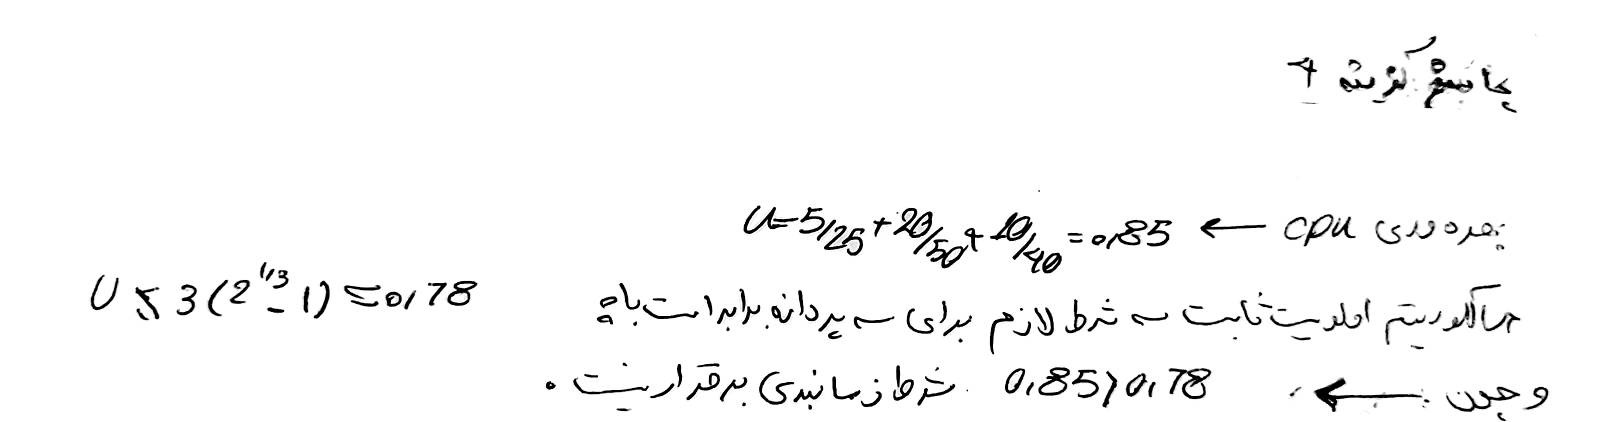 پاسخ گزینه 4
بهره‌وری cpu ← U=5/25+20/50+10/40=0,85
در الگوریتم اولویت ثابت شرط لازم برای سه پردازه برابر است با: U ≤ 3(2^1/3 - 1) ≈ 0,78
و چون ← 0,85 > 0,78 شرط زمانبندی برقرار نیست.